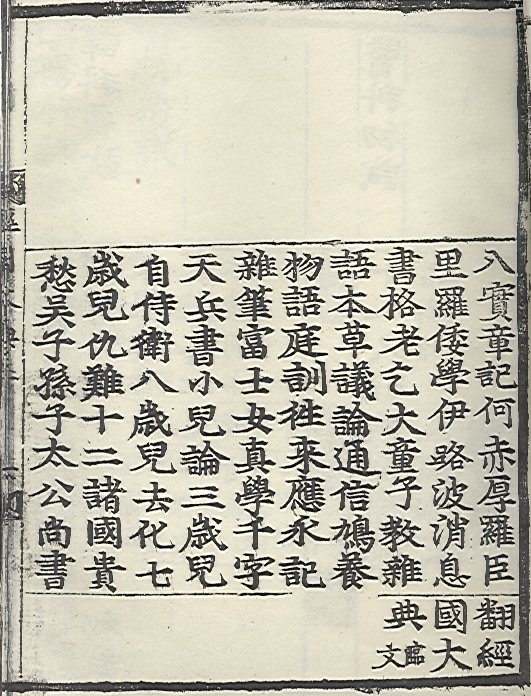 入實章記何赤厚羅臣
里羅倭學伊路波消息
書格老乞大童子教雜
語本草議論通信鳩養
物語庭訓徃来應永記
雜筆富士女真學千字
天兵書小兒論三歲兒
自侍衛八歲兒去化七
歲兒仇難十二諸國貴
愁吳子孫子太公尚書
翻經
國大
典臨文